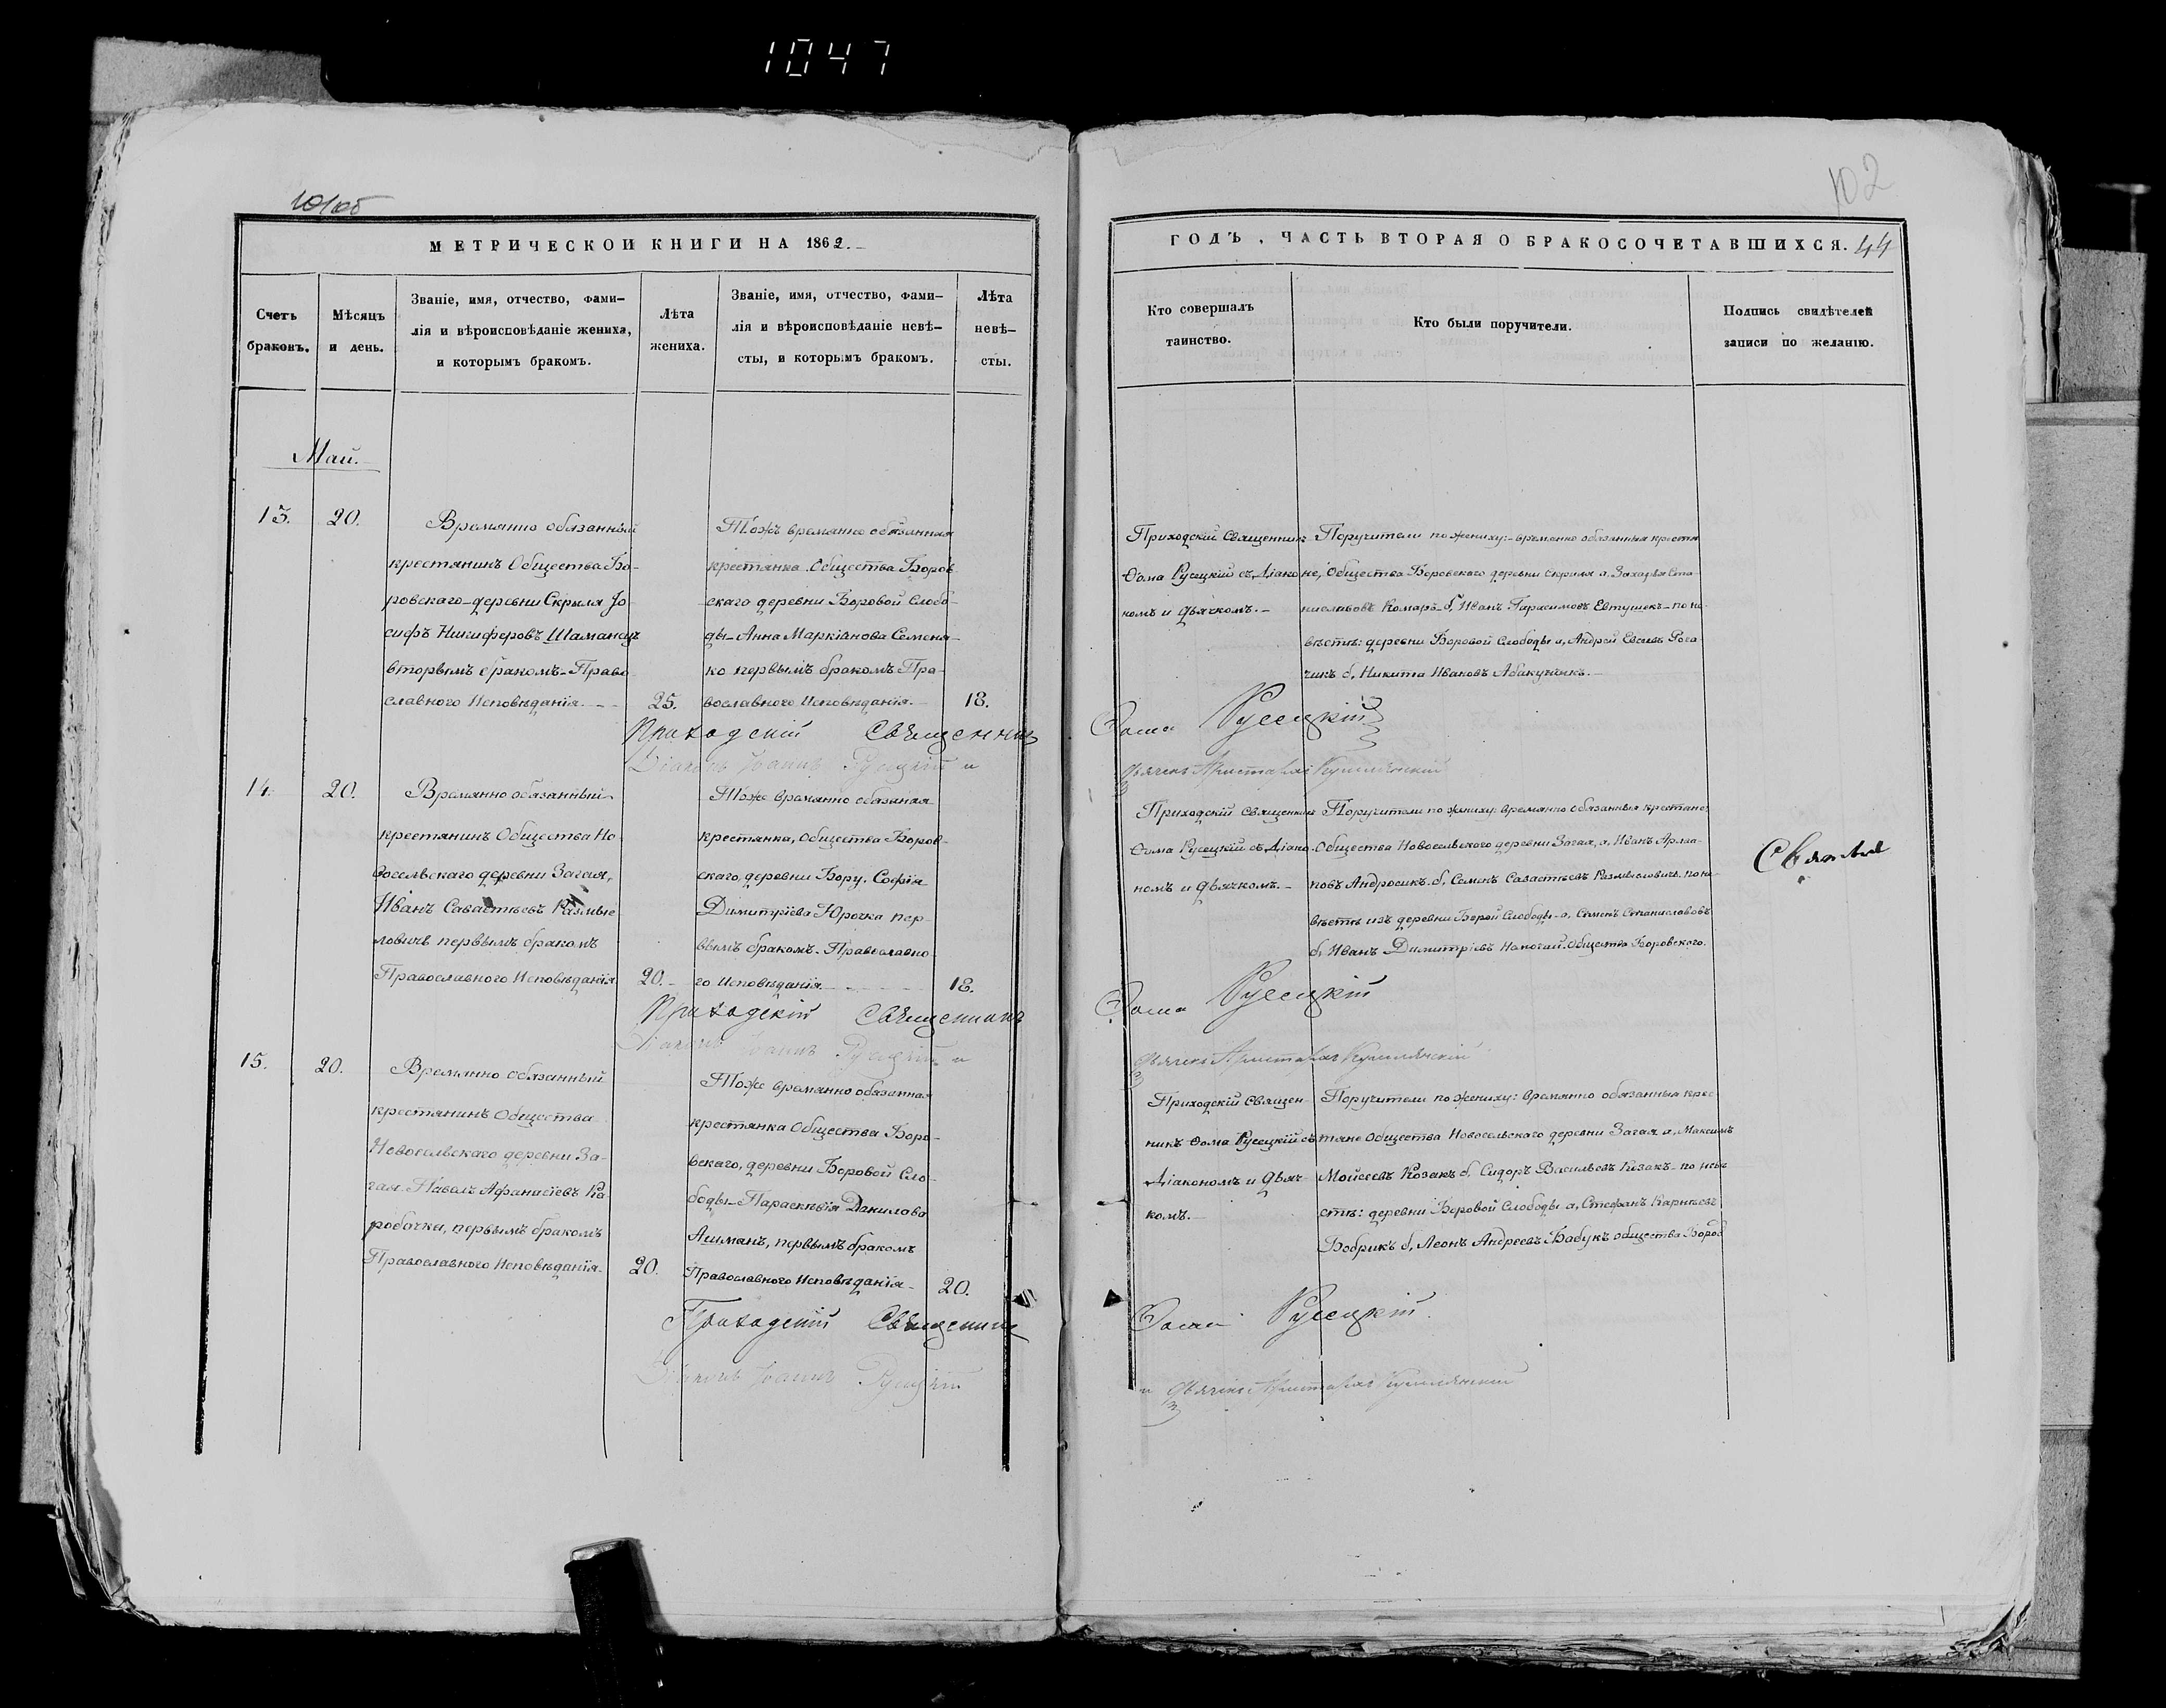 1047
101об
МЕТРИЧЕСКОЙ КНИГИ НА 1862.
Счетъ
браковъ.
Мѣсяцъ
и день.
Званіе, имя, отчество, фами-
лія и вѣроисповѣданіе жениха,
и которымъ бракомъ.
Лѣта
жениха.
Званіе, имя, отчество, фами-
лія и вѣроисповѣданіе невѣ-
сты, и которымъ бракомъ.
Лѣта
невѣ-
сты.
Май.
13.
20.
Времянно обязанный
крестянинъ Общества Бо-
ровскаго деревни Скрыля Іо-
сифъ Никифоровъ Шаманец
вторымъ бракомъ Право
славного Исповѣданія.
25.
Тожъ времянно обязанная
крестянка Общества Боров
скаго деревни Боровой Слобо-
ды Анна Маркіанова Семеня-
ко первымъ бракомъ Пра-
вославного Исповѣданія.
18.
Приходскій Священник
Діаконъ Іоаннъ Русецкій и
14.
20.
Времянно обязанный
крестянинъ Общества Но-
восельскаго деревни Загая,
Иванъ Савастѣевъ Размыс
ловичъ первымъ бракомъ
Православного Исповѣданія
20.
Тоже времянно обязаная
крестянка, Общества Боров-
скаго, деревни Бору. Софія
Димитріева Юрочка пер-
вымъ бракомъ. Православно
го Исповѣданія.
18.
Приходскій Священникъ
Діаконъ Іоаннъ Русецкій и
15.
20.
Времянно обязанный
крестянинъ Общества
Новосельскаго деревни За-
гая Павелъ Афанасіевъ Ка
робочка, первымъ бракомъ
Православного Исповѣданія
20.
Тоже времянно обязанная
крестянка Общества Боро-
вскаго, деревни Боровой Сло-
боды Параскевія Данилова
Ашманъ, первымъ бракомъ
Православного Исповѣданія
20.
Приходскій Священник
Діаконъ Іоаннъ Русецкій
102
ГОДЪ, ЧАСТЬ ВТОРАЯ О БРАКОСОЧЕТАВШИХСЯ. 44
Кто совершалъ
таинство.
Кто были поручители.
Подпись свидѣтелей
записи по желанію.
Приходскій Священник
Ѳома Русецкій съ Діако
номъ и Дьячкомъ.
Поручители по жениху: времянно обязанныя крестя
не, Общества Боровскаго деревни Скрыля а, Захарія Ста
ниславовъ Комаръ б, Иванъ Гарасимовъ Евтушекъ по не
вѣстѣ: деревни Боровой Слободы а, Андрей Евсеевъ Рога
чикъ б, Никита Ивановъ Абакунчикъ.
Ѳома Русецкій
Дьячекъ Аристархъ
Приходскій Священникъ
Ѳома Русецкій съ Діако
номъ и Дьячкомъ.
Поручители по жениху: времянно обязанныя крестяне:
Общества Новосельского деревни Загая, а, Иванъ
повъ Андросикъ б, Семенъ Савастѣевъ Размысловичъ. по не-
вѣстѣ изъ деревни Борой Слободы а, Семенъ Станиславовъ
б, Иванъ Димитріевъ Общества Боровского.
Ѳома Русецкій
Дьячекъ Аристархъ
Приходскій Священ-
никъ Ѳома Русецкій съ
Діакономъ и Дьяч-
комъ.
Поручители по жениху: времянно обязанныя крес
тяне Общества Новосельского деревни Загая а, Максимъ
Мойсеевъ Козакъ б, Сидоръ Васильевъ Козакъ по невѣ
стѣ: деревни Боровой Слободы а, Стефанъ Карнѣевъ
Бобрикъ б, Леонъ Андреевъ Бабукъ общества Боров
Ѳома Русецкій
и Дьячекъ Аристархъ